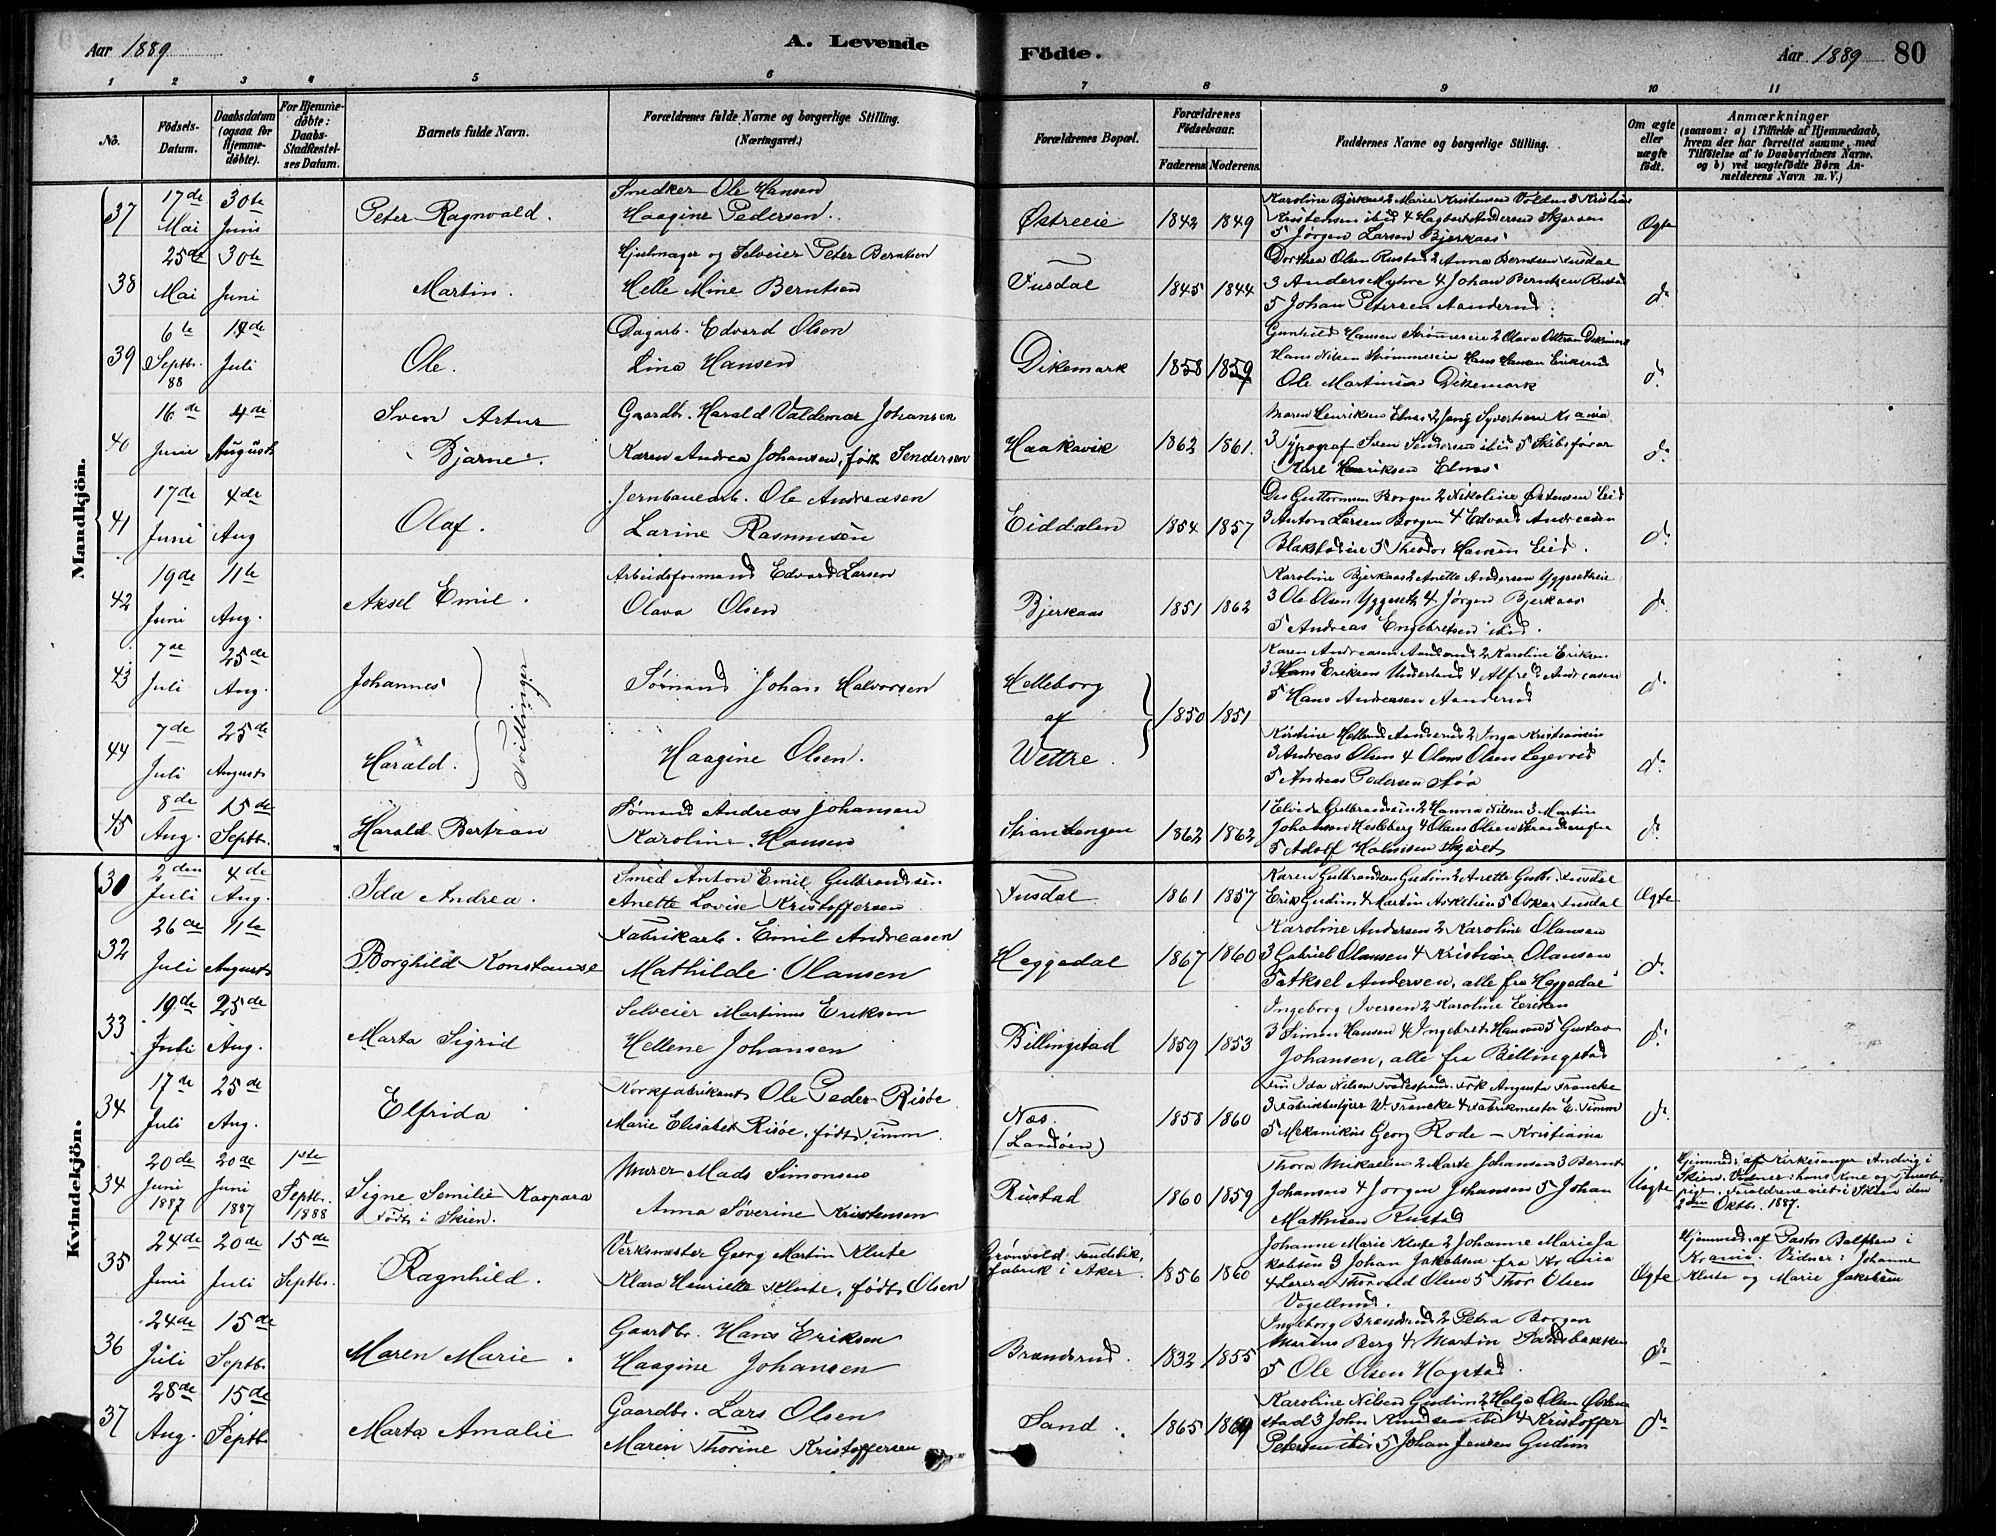 Aar 1889
A. Levende
Fødte.
Aar 1889
80
1 2 3 4 5 6 7 8 9 10 11
No.
Fødsels-
Datum.
Daabsdatum
(ogsaa for
Hjemme-
døbte).
For Hjemme-
døbte:
Daabs-
Stadfæstel-
ses Datum.
Barnets fulde Navn.
Forældrenes fulde Navne og borgerlige Stilling.
(Næringsvei.)
Forældrenes Bopæl.
Forældrenes
Fødselsaar.
Faderens. Moderens.
Faddernes Navne og borgerlige Stilling.
Om ægte
eller
uægte
født.
Anmærkninger
(saasom: a) i Tilfælde af Hjemmedaab,
hvem der har forrettet samme, med
Tilføielse af to Daabsvidners Navne.
og b) ved uægtefødte Børn An-
melderens Navn m. V.)
Mandkjön.
37
17de
Mai
30te
Juni
Peter Ragnvald.
Snedker Ole Hansen
Haagine Pedersen.
Østreeie
1842 1849
Karoline Bjerkaas 2 Marie Kristensen Volden 3 Kristian
Kristensen ibid 4 Hagbart Andersen Skjeraen
5 Jørgen Larsen Bjerkaas
Ægte
38
25de
Mai
30te
Juni
Martin.
Hjulmager og Selveier Peter Berntsen
Helle Mine Berntsen
Fusdal
1845 1844
Dorthea Olsen Rustad 2 Anna Berntsen Fusdal
3 Anders Myhre 4 Johan Berntsen Rustad
5 Johan Petersen Aanderud
do
39
6te
Septbr.
88
14de
Juli
Ole.
Dagarb. Edvard Olsen
Lina Hansen
Dikemark
1858 1859
Gunhild Hansen Strømmereie 2 Olava Dikemark
Hans Nilsen Strømmereie Hans Hansen
Ole Martinsen Dikemark
do
40
16de
Juni
4de
August
Sven Artur
Bjarne.
Gaardb. Harald Valdemar Johansen
Karen Andrea Johansen, født Sendersen
Haakavik
1862 1861.
Maren Henriksen Elnes 2 Jenny Syvertsen Kr.ania
3 Typograf Sven Sendersen ibid 5 Skibsfører
Karl Henriksen Elnes
do
41
17de
Juni
4de
Aug
Olaf.
Jernbanearb. Ole Andreasen
Larine Rasmussen
Eiddalen
1854 1857
Guttormsen Borgen 2 Nikoline Østensen Eid
3 Anton Larsen Borgen 4 Edvard Andreasen
Blakstadeie 5 Theodor Hansen Eid.
do
42
19de
Juni
11te
Aug.
Aksel Emil.
Arbeidsformand Edvard Larsen
Olava Olsen
Bjerkaas
1851 1862
Karoline Bjerkaas 2 Anette Andersen Yggeseteie
3 Ole Olsen Yggeset 4 Jørgen Bjerkaas
5 Andreas Engebretsen ibid.
do
43
7de
Juli
25de
Aug.
Johannes
Tvillinger
Sømand Johan Halvorsen
Helleborg
af
1850 1851
Karen Andreasen Aanderud 2 Karoline Eriksen
3 Hans Eriksen Underland 4 Alfred Andreasen
5 Hans Andreasen Aanderud
do
44
7de
Juli
25de
August
Harald.
Haagine Olsen.
Wettre.
Kirstine Helland Aanderud 2 Inga Kristiansen
3 Andreas Olsen 4 Olaus Olsen
5 Andreas Pedersen
do
45
8de
Aug.
15de
Septb.
Harald Bertran
Sømand Andreas Johansen
Karoline Hansen
Strandengen
1862 1862
1 Elvida Gulbrandsen 2 Hanna Nilsen 3 Martin
Johansen Hesleberg 4 Olaus Olsen Strandengen
5 Adolf Halvorsen Skjæret
do
Kvindekjön.
30
2den
Juli
4de
Aug.
Ida Andrea.
Smed Anton Emil Gulbrandsen
Anette Lovise Kristoffersen
Fusdal
1861 1857
Karen Gulbrandsen Gudim 2 Anette Gulb. Fusdal
Erik Gudim 4 Martin Askelien 5 Oskar Fusdal
Ægte
32
26de
Juli
11te
August
Borghild Konstanse
Fabrikarb. Emil Andreasen
Mathilde Olausen
Heggedal
1867 1860
Karoline Andersen 2 Karoline Olausen
3 Gabriel Olausen 4 Kristiane Olausen
5 Aksel Andersen, alle fra Heggedal
do
33
19de
Juli
25de
Aug.
Marta Sigrid
Selveier Martinus Eriksen
Hellene Johansen
Billingstad
1859 1853
Ingeborg Iversen 2 Karoline Eriksen
3 Simen Hansen 4 Ingebret Hansen 5 Gustav
Johansen, alle fra Billingstad
do
34
17de
Juli
25de
Aug.
Elfrida
Korkfabrikant Ole Peder Risöe
Marie Elisabet Risöe, født Timm
Næs
(Landöen)
1858 1860
Fru Ida Nielsen Tvedestrand. Frk Augusta Francke
3 Fabrikbestyrer W. Francke 4 Fabrikmester E. Timm
5 Mekanikus Georg Rode – Kristiania
do
34
20de
Juni
1887
20de
Juni
1887
1ste
Septbr.
1888
Signe Semilie Kaspara
Født i Skien.
Murer Mads Simonsen
Anna Söverine Kristensen
Rustad
1860 1859
Thora Mikaelsen 2 Marte Johansen 3 Bernt
Johansen 4 Jørgen Johansen 5 Johan
Mathisen Rustad
Uægte
Hjemmed. af Kirkesanger Andvig i
Skien. Vidner: hans Kone og Tjeneste-
pigen. Forældrene viet i Skien den
2den Oktbr. 1887.
35
24de
Juni
20de
Juli
15de
Septbr.
Ragnhild.
Verksmester Georg Martin Klute
Klara Henriette Klute, født Olsen
Grønvold Tændstik-
fabrik i Aker
1856 1860
Johanne Marie Klute 2 Johanne Marie Ja
kobsen 3 Johan Jakobsen fra Kr.ania
4 Thorvald Olsen 5 Thor Olsen
Vogellund.
Ægte
Hjemmed. af Pastor i
Kr.ania. Vidner: Johanne
Klute og Marie Jakobsen
36
24de
Juli
15de
Septbr.
Maren Marie.
Gaardbr. Hans Eriksen
Haagine Johansen
Brænderud.
1832 1855
Ingeborg Brænderud 2 Petra Borgen
Marius Berg 4 Martin Sandsbakken
5 Ole Olsen Hogstad.
do
37
28de
Aug.
15de
Septb.
Marta Amalie
Gaardbr. Lars Olsen
Maren Thorine Kristoffersen
Sand.
1865 1869
Karoline Nilsen Gudim 2 Helga Olsen Østen
stad 3 John Knudsen ibid 4 Kristoffer
Petersen ibid 5 Johan Jensen Gudim
do